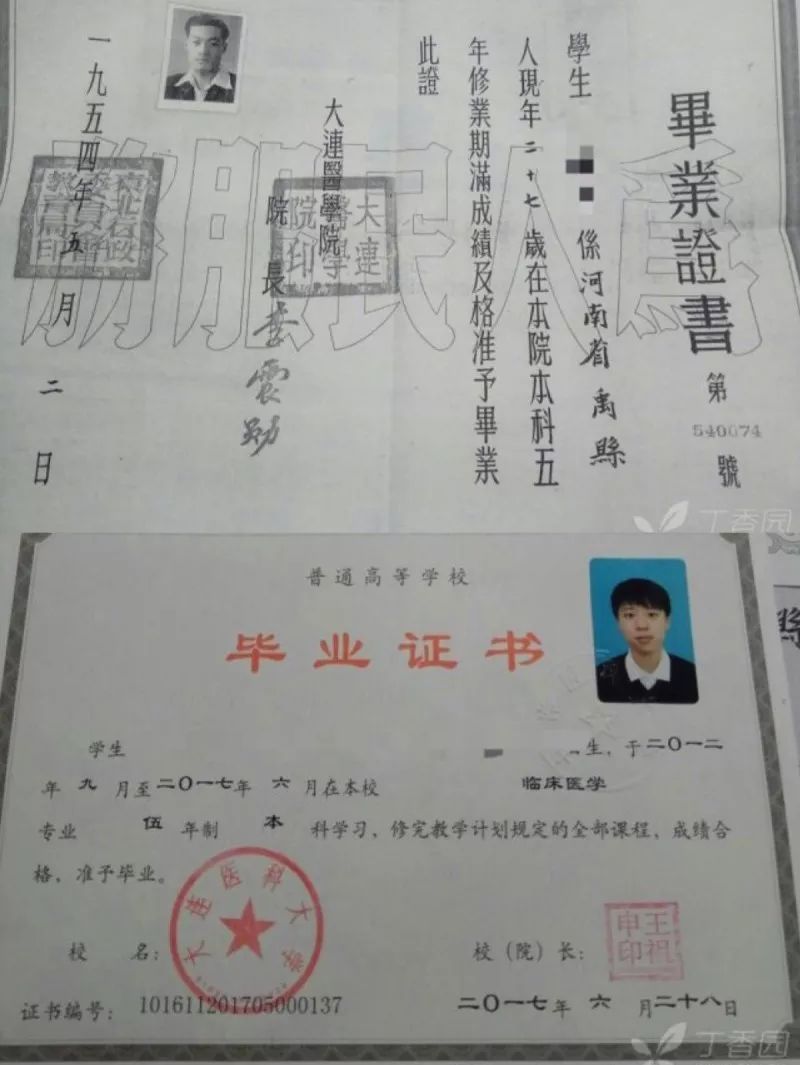 畢業證書
第
540074
號
學生
係河南省禹縣
人現年二十七歲在本院本科五
年修業期滿成績及格准予畢業
此證
大連醫學院
院長李震勛
大連醫學院印
一九五四年五月二日
為人民服務
丁香园
普通高等学校
毕业证书
学生
生，于二〇一二
年九月至二〇一七年六月在本校
临床医学
专业伍年制本科学习，修完教学计划规定的全部课程，成绩合
格，准予毕业。
大连医科大学
校名：
校（院）长：
王祖
申印
证书编号：101611201705000137
二〇一七年六月二十八日
丁香园
縣